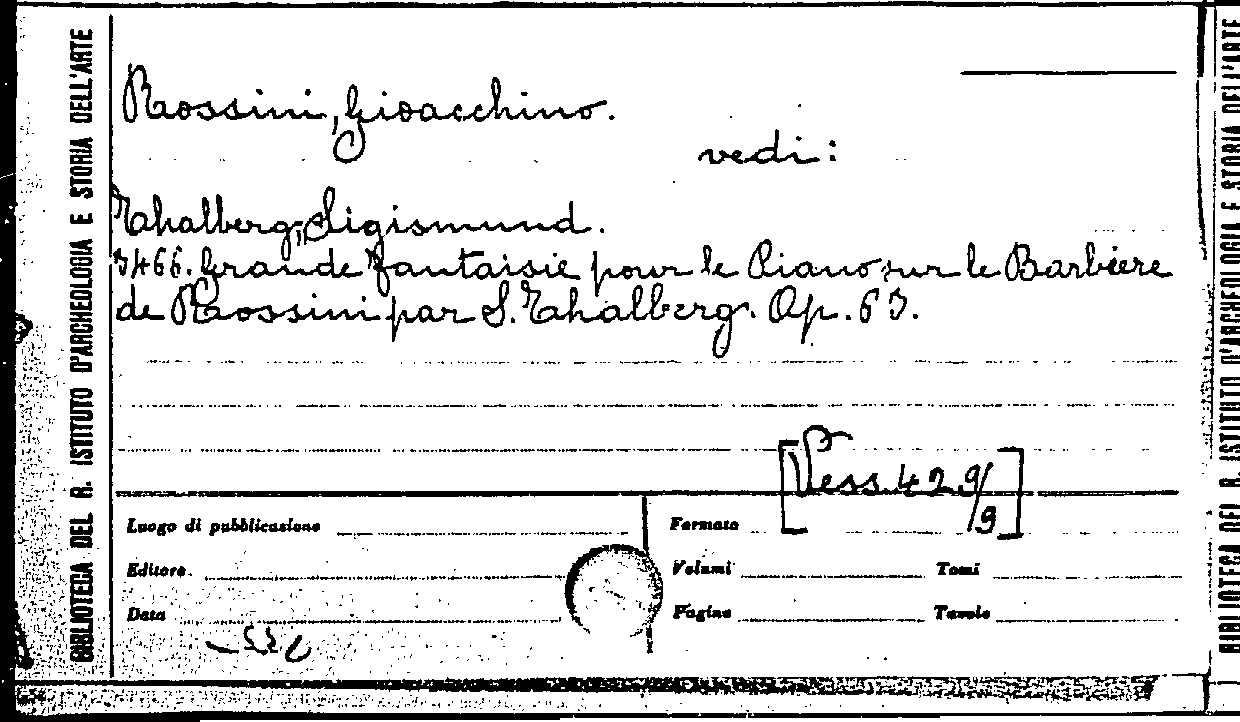 BIBLIOTECA DEL R. ISTITUTO D'ARCHEOLOGIA E STORIA DELL'ARTE
Rossini, Gioacchino.
vedi:
Thalberg, Sigismund.
3466. Grande fantaisie pour le Piano sur le Barbiere
de Rossini par S. Thalberg. Op. 63.
[Vess. 429/9]
Luogo di pubblicazione
Formato
Editore
Volumi
Tomi
Data
Pagine
Tavole
BIBLIOTECA DEL R. ISTITUTO D'ARCHEOLOGIA E STORIA DELL'ARTE